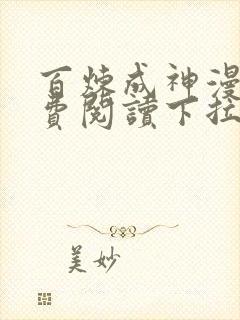 百炼成神漫
费閱讀下拉
美妙